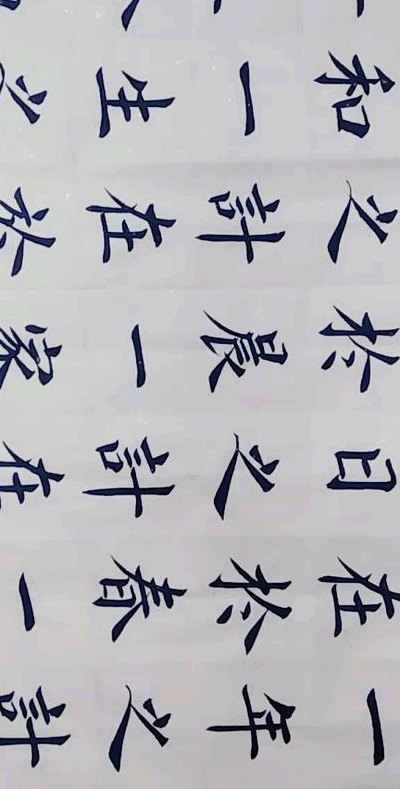 一年之計
在於春一
日之計在
於晨一家
之計在於
和一生之